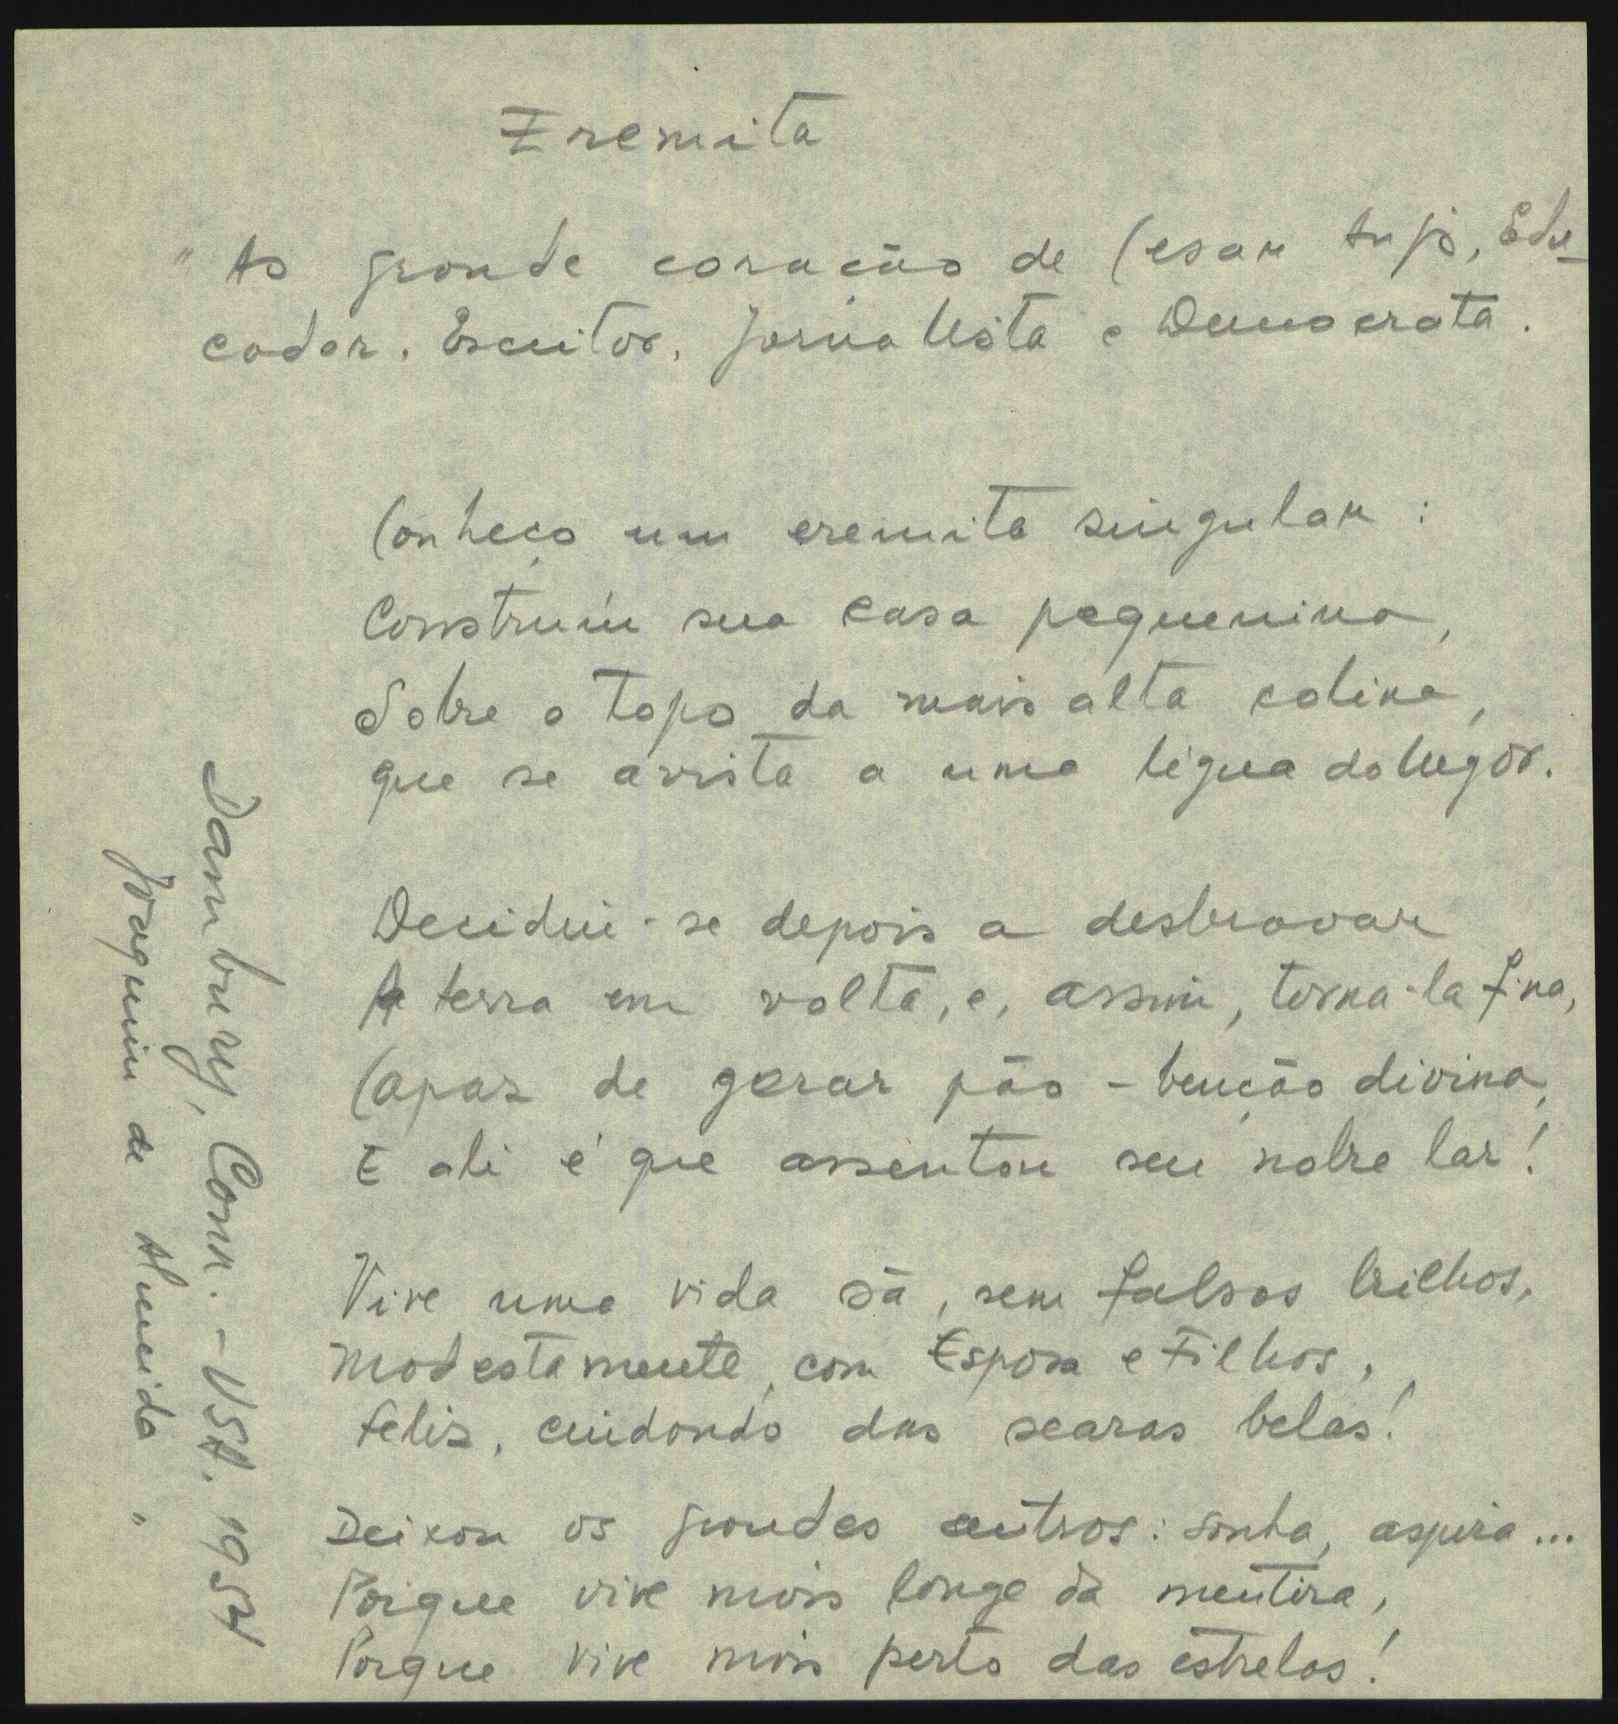 Eremita
"Ao grande coração de Cesar Anjo, Edu-
cador, Escritor, Jornalista e Democrata.
Conheço um eremita singular:
Construíu sua casa pequenina,
Sobre o topo da mais alta colina,
que se avista a uma légua do lugar.
Decidiu-se depois a desbravar
A terra em volta, e, assim, torna-la fina,
Capaz de gerar pão - benção divina,
E ali é que assentou seu nobre lar!
Vive uma vida sã, sem falsos brilhos,
Modestamente, com Esposa e Filhos,
feliz, cuidando das searas belas!
Deixou os grandes centros: sonha, aspira...
Porque vive mais longe da mentira,
Porque vive mais perto das estrelas!
Danbury, Conn. - USA. 1954
Joaquim de Almeida "